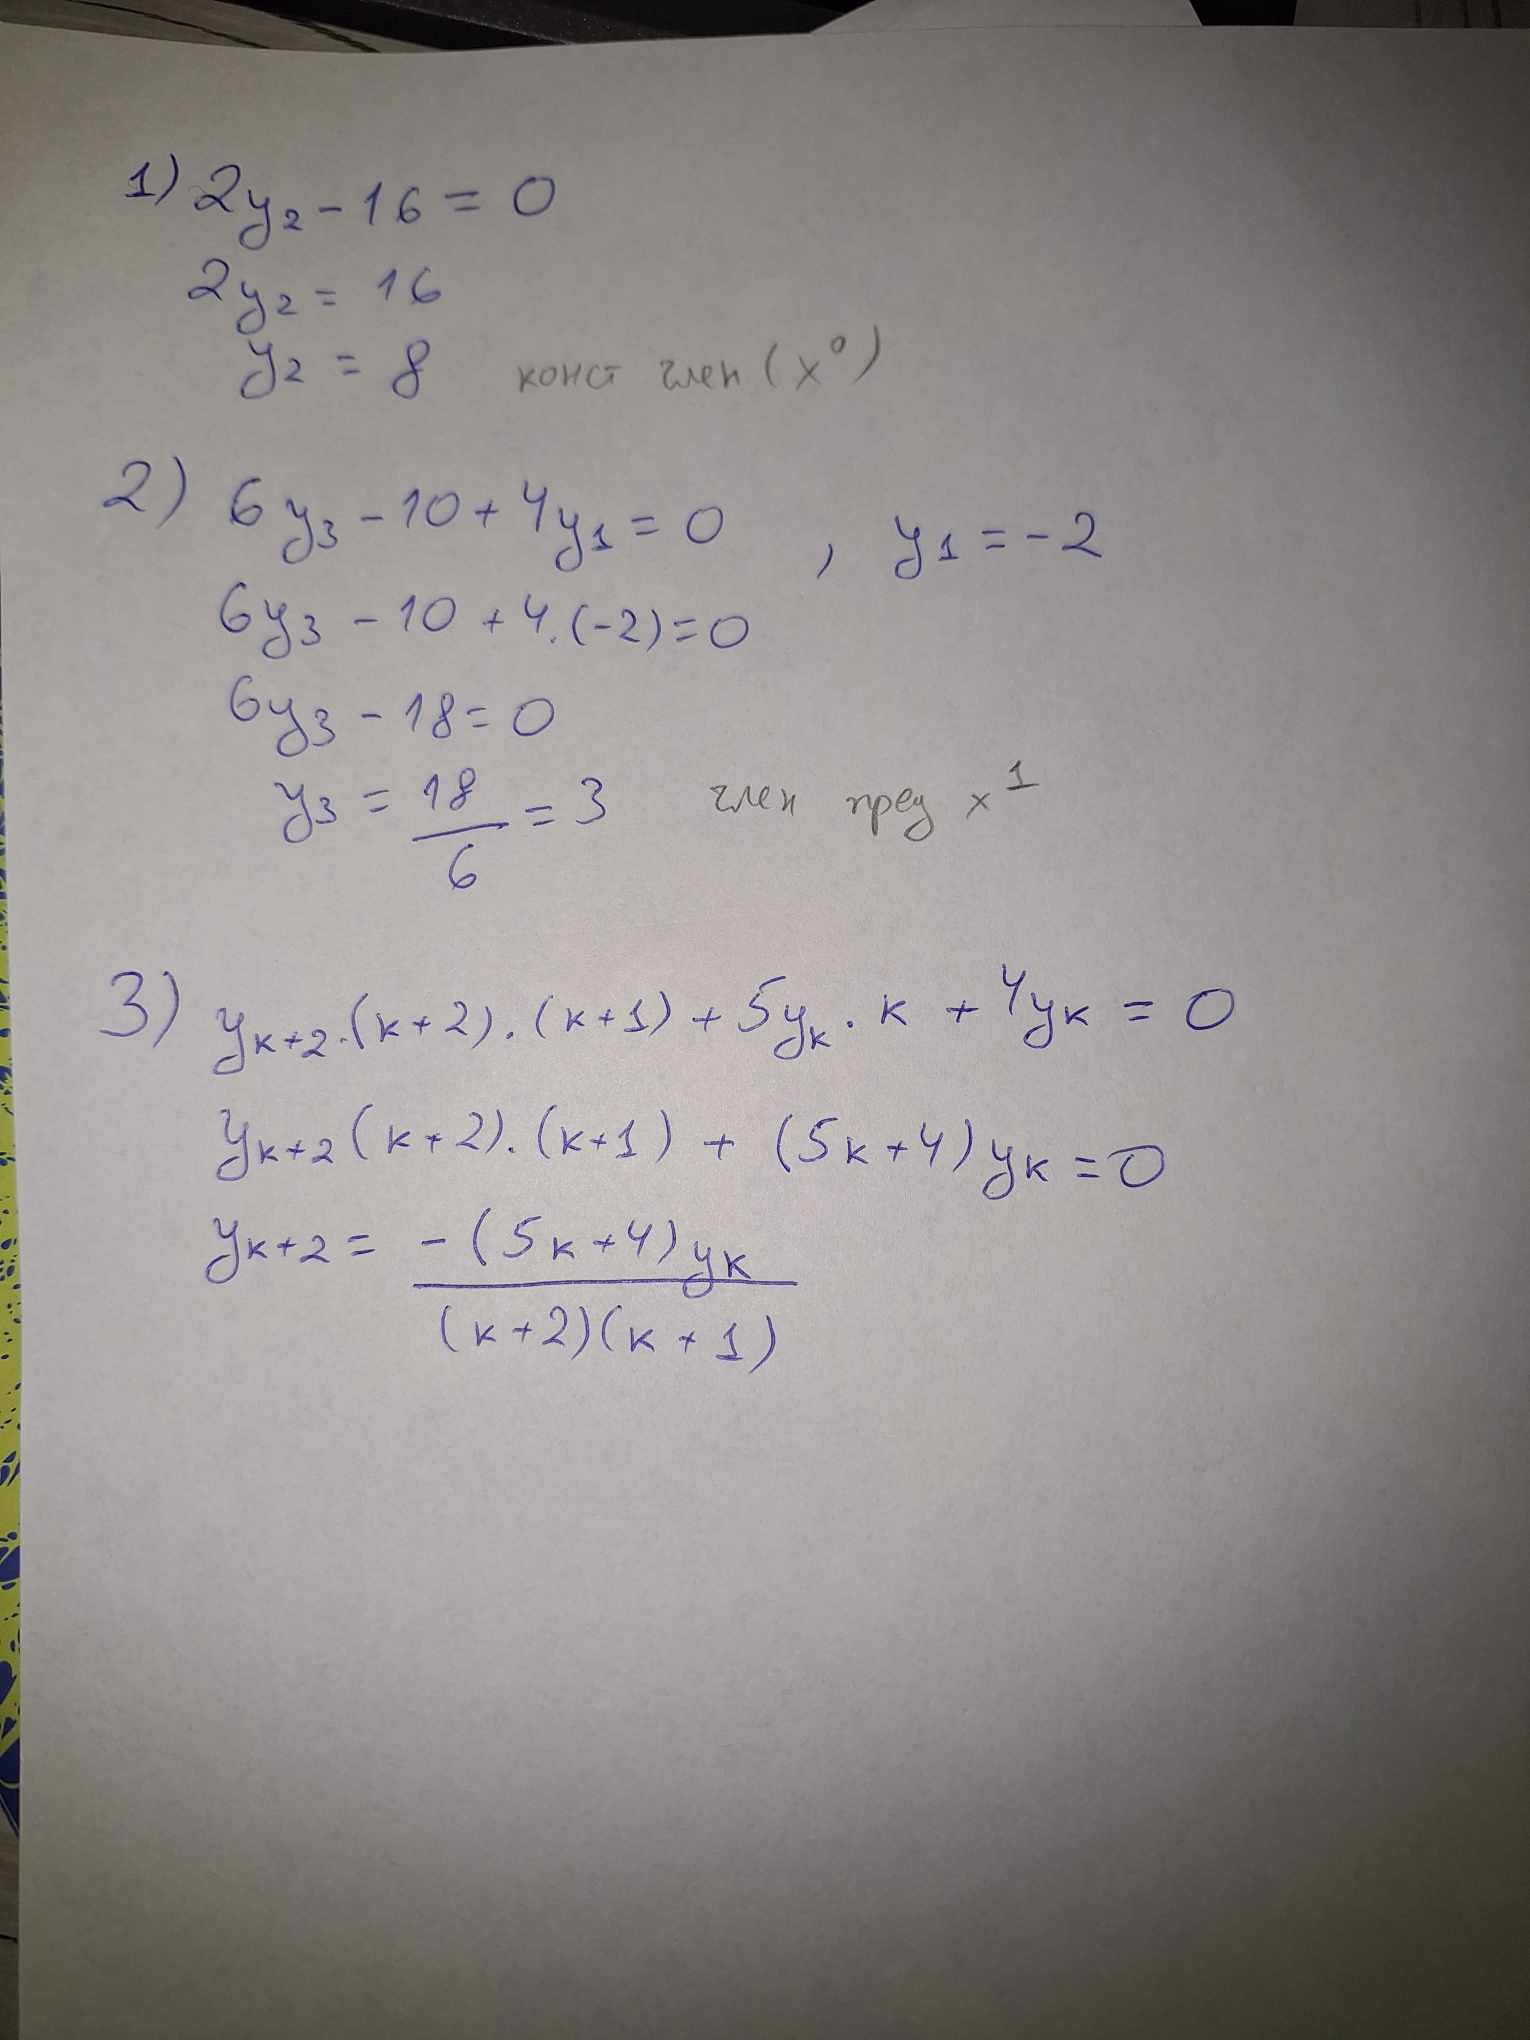 1) 2y₂ - 16 = 0
2y₂ = 16
y₂ = 8 конст член (x⁰)
2) 6y₃ - 10 + 4y₁ = 0 , y₁ = -2
6y₃ - 10 + 4.(-2) = 0
6y₃ - 18 = 0
y₃ = 18/6 = 3 член пред x¹
3) yₖ₊₂.(k+2).(k+1) + 5yₖ.k + 4yₖ = 0
yₖ₊₂(k+2).(k+1) + (5k+4)yₖ = 0
yₖ₊₂ = -(5k+4)yₖ
(k+2)(k+1)